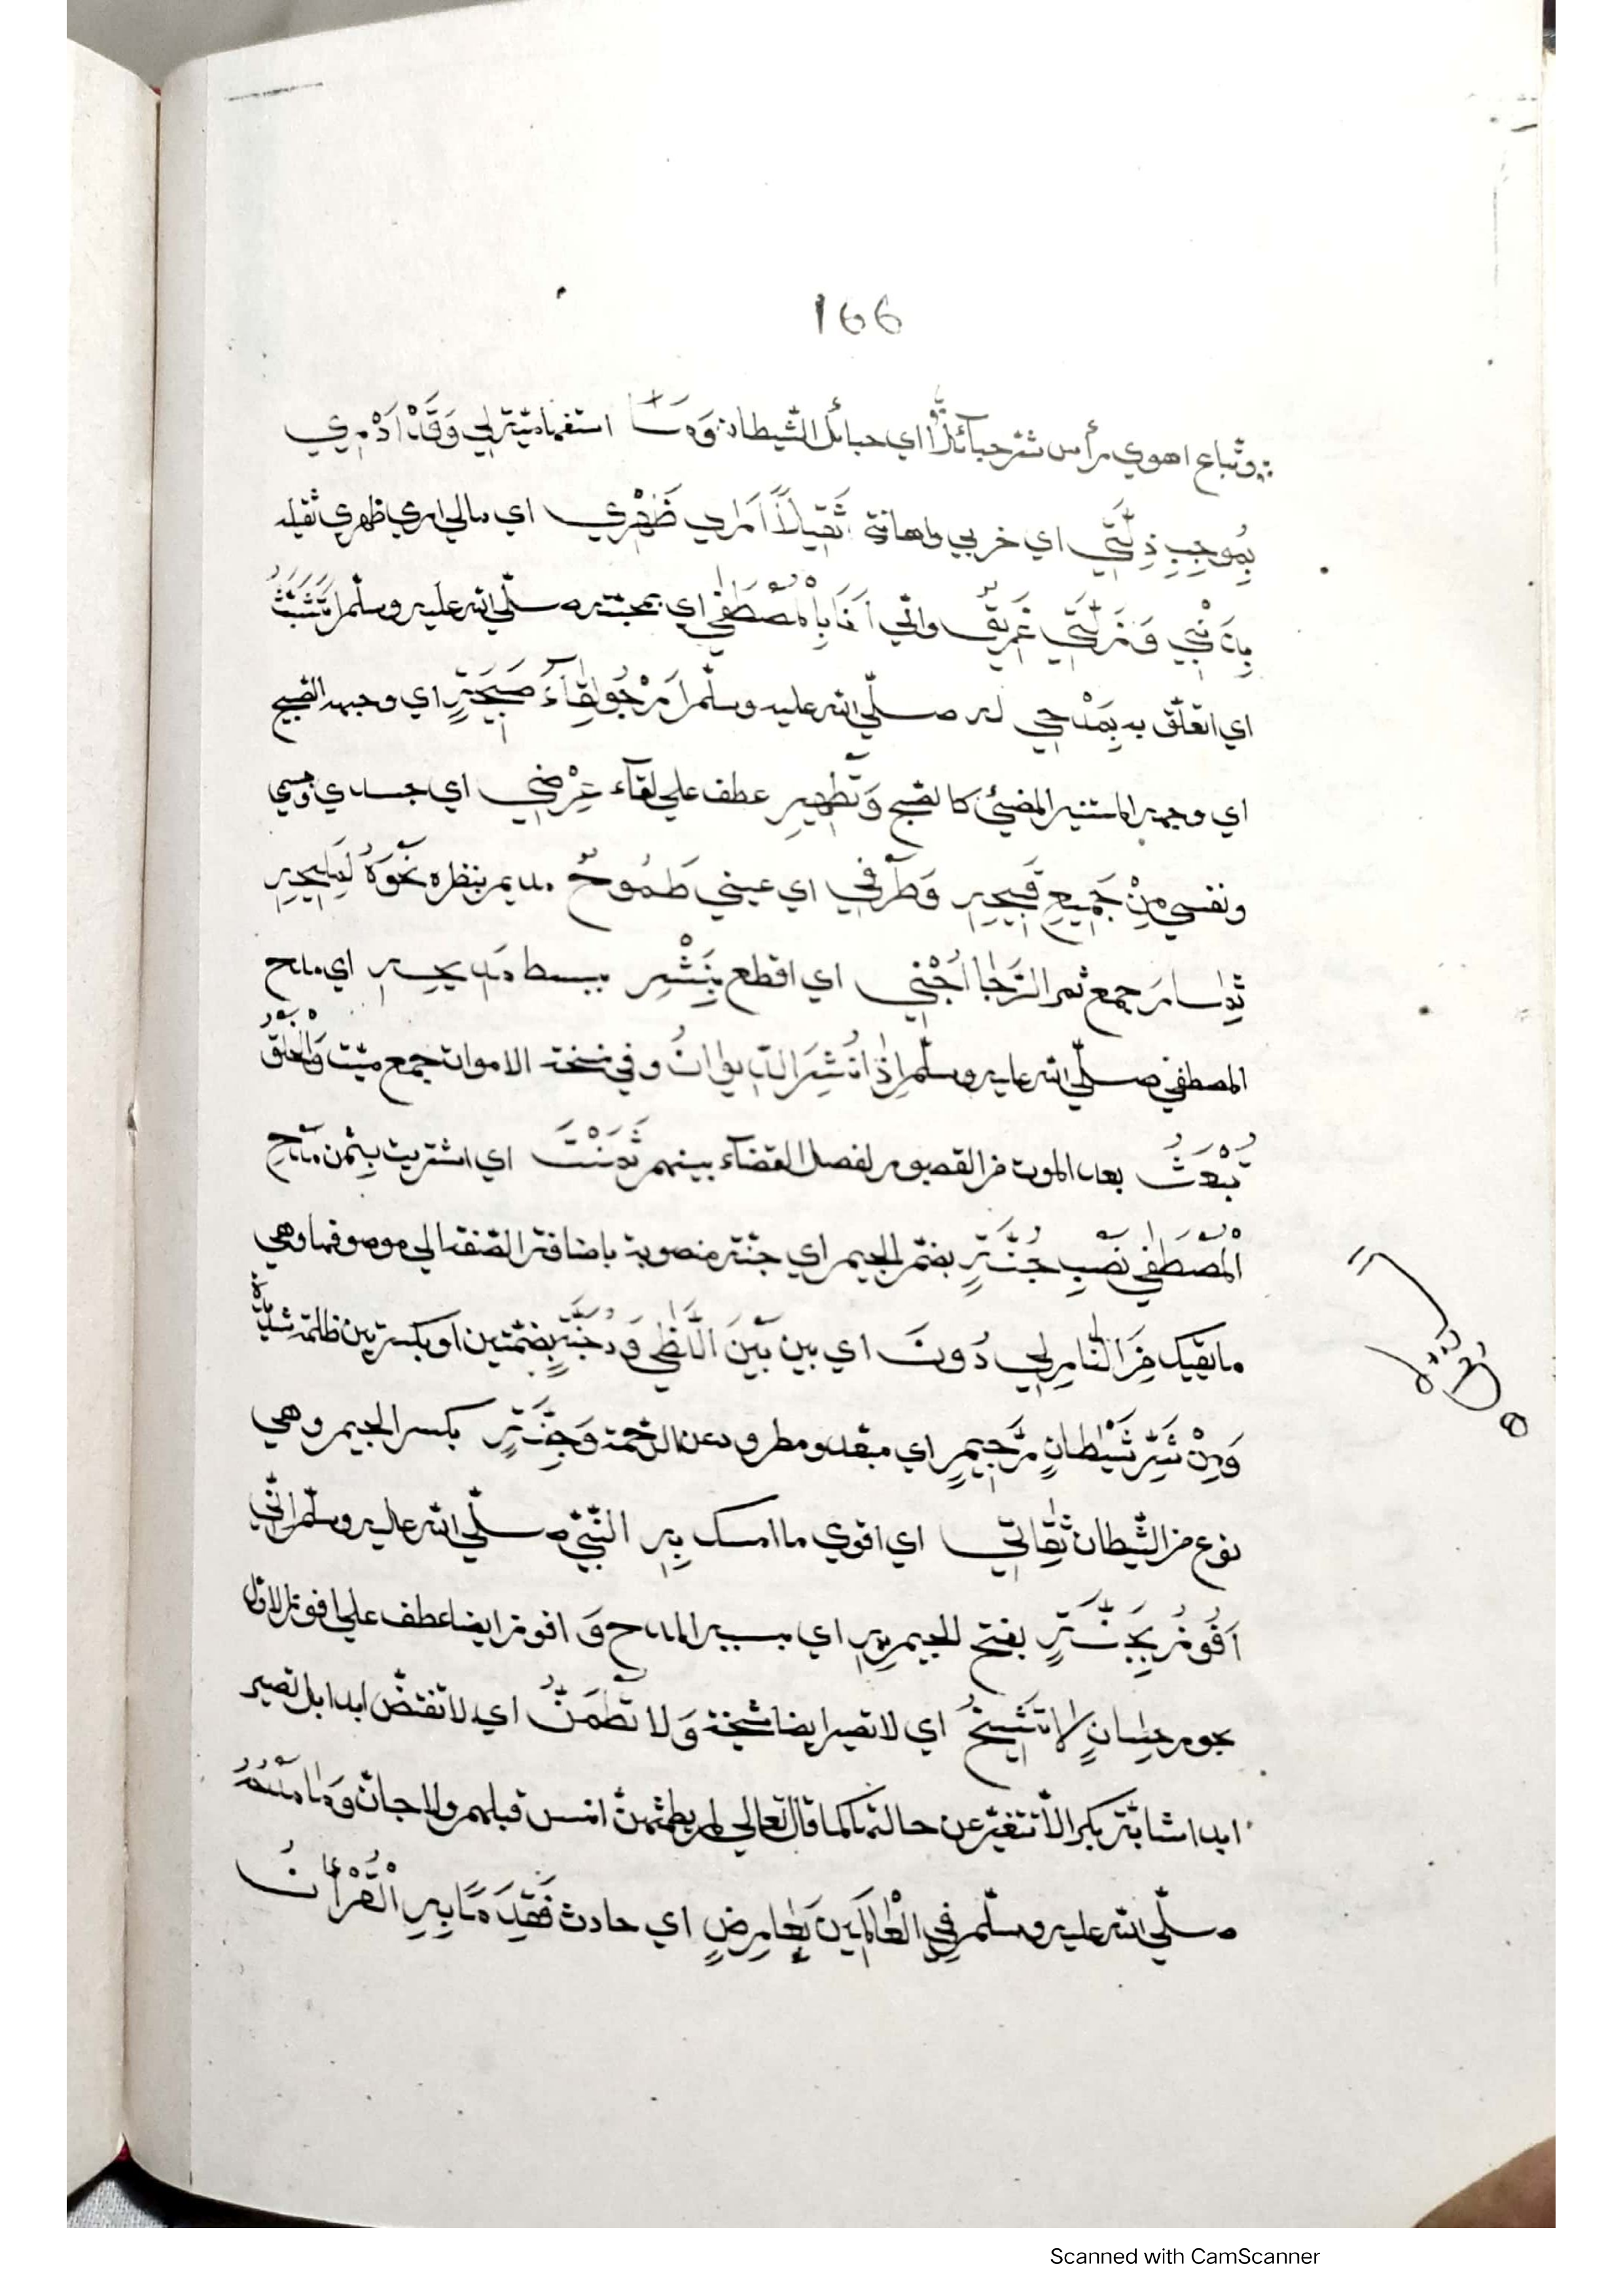 166
وتباع اهوي رأس شر حبائلا اي حبائل الشيطان وما استفهامية لي وقد ادري
بموجب ذلتي اي خربي واهانة ثقيلا اري ظهري اي مالي اري ظهري ثقيله
بذنبي وزلتي غريق واني انا بالمصطفي اي بمحبته صلي الله عليه وسلم اتشبث
اي اتعلق به بمدحي له صلي الله عليه وسلم ارجو لقاء صبيحة اي وجهه الصبيح
اي وجهه المستنير المضيئ كالصبح وتطهير عطف علي لقاء عرضي اي جسدي وجسمي
ونفسي من جميع قبيحه وطرفي اي عيني طموح مديم بنظره نحوه
ثمار جمع ثمر الرجا اجني اي اقطع بنشر ببسط مديحه اي مدح
المصطفي صلي الله عليه وسلم اذا نشر الديوان وفي نسخة الاموات جمع ميت والخلق
تبعث بعد الموت من القبور لفصل القضاء بينهم ثمنت اي اشتريت بثمن مدح
المصطفي نصب جنة بضم الجيم اي جنة منصوبة باضافة الصفة الي موصوفها وهي
ما يقيك من النار لي دون اي بين بين اللظي ودجنة بضمتين او بكسرتين ظلمة شديدة
ومن شر شيطان رجيم اي مبعد ومطرود عن الرحمة وجنة بكسر الجيم وهي
نوع من الشيطان ثقاتي اي اقوي ما امسك به النبي صلي الله عليه وسلم اني
افوز بجنة بفتح الجيم به اي بسبب المدح و افوز ايضا عطف علي افوز الاول
بحور حسان لا تشيخ اي لا تصير ايضا شيخة ولا تطمث اي لا تفتض ابدا بل تصير
ابدا شابة بكرا لا تتغير عن حالتها كما قال تعالي لم يطمثهن انس قبلهم ولا جان وما مثله
صلي الله عليه وسلم في العالمين بعارض اي حادث فقدما به القرءان
Scanned with CamScanner